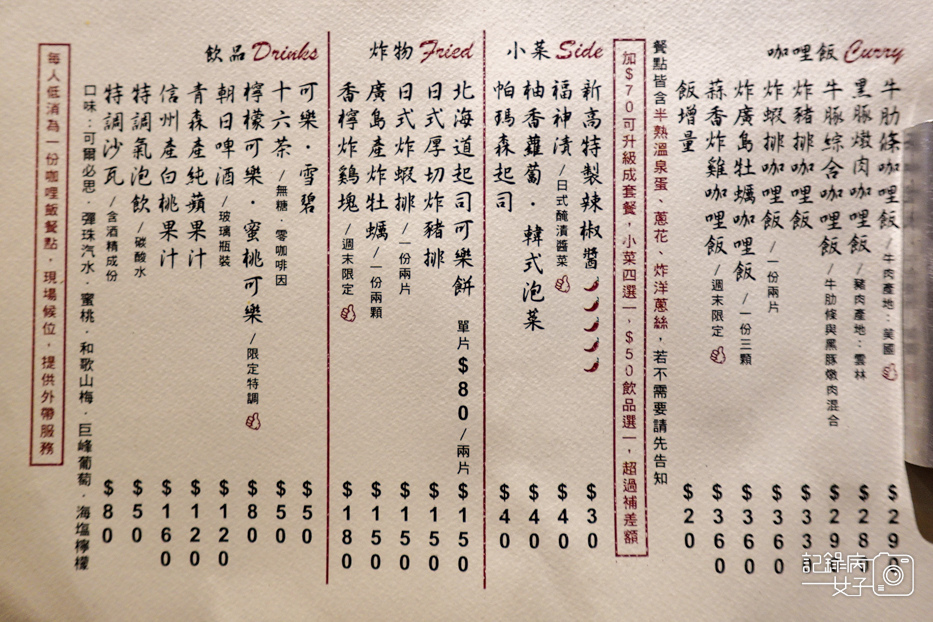 咖哩飯 Curry
牛肋條咖哩飯 /牛肉產地：美國 $290
黑豚燉肉咖哩飯 /豬肉產地：雲林 $280
牛豚綜合咖哩飯 /牛肋條與黑豚燉肉混合 $290
炸豬排咖哩飯 $330
炸蝦排咖哩飯 /一份兩片 $360
炸廣島牡蠣咖哩飯 /一份三顆 $360
蒜香炸雞咖哩飯 /週末限定 $360
飯增量 $20
餐點皆含半熟溫泉蛋、蔥花、炸洋蔥絲，若不需要請先告知
加$70可升級成套餐，小菜四選一，$50飲品選一，超過補差額
小菜 Side
新高特製辣椒醬 $30
福神漬 /日式醃漬醬菜 $40
柚香蘿蔔．韓式泡菜 $40
帕瑪森起司 $40
炸物 Fried
北海道起司可樂餅 單片$80/兩片$150
日式厚切炸豬排 $150
日式炸蝦排 /一份兩片 $150
廣島產炸牡蠣 /一份兩顆 $150
香檸炸雞塊 /週末限定 $180
飲品 Drinks
可樂．雪碧 $50
十六茶 /無糖．零咖啡因 $50
檸檬可樂．蜜桃可樂 /限定特調 $80
朝日啤酒 /玻璃瓶裝 $120
青森產純蘋果汁 $120
信州產白桃果汁 $160
特調氣泡飲 /碳酸水 $50
特調沙瓦 /含酒精成份 $80
口味：可爾必思．彈珠汽水．蜜桃．和歌山梅．巨峰葡萄．海塩檸檬
每人低消為一份咖哩飯餐點，現場候位，提供外帶服務
記錄病女子